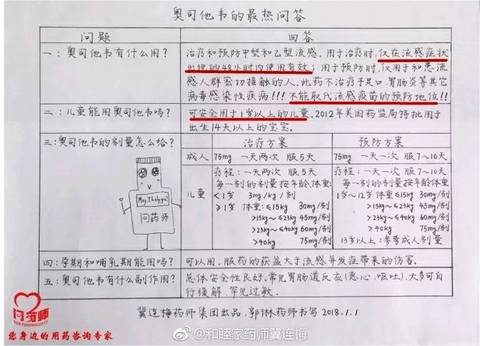 奥司他韦的最热问答
问题
回答
一：奥司他韦有什么用？
治疗和预防甲型和乙型流感。用于治疗时，仅在流感症状
出现的48小时内使用有效；用于预防时，仅用于和患流
感人群密切接触的人。此药不治疗手足口、胃肠炎等其它
病毒感染性疾病!!! 不能取代流感疫苗的预防地位!!
二：儿童能用奥司他韦吗？
可安全用于1岁以上的儿童。2012年美国药监局特批用于
出生14天以上的宝宝。
三：奥司他韦的剂量怎么给？
治疗方案
预防方案
成人
75mg 一天两次 服5天
75mg 一天一次 服7~10天
儿童
疗程：一天两次 服5天
每一剂的剂量按年龄、体重
≤15kg 30mg/剂
>15kg~≤23kg 45mg/剂
>23kg~≤40kg 60mg/剂
>40kg 75mg/剂
疗程：一天一次 服7~10天
每一剂的剂量按年龄、体重
1岁~12岁 体重 ≤15kg 30mg/剂
>15kg~≤23kg 45mg/剂
>23kg~≤40kg 60mg/剂
>40kg 75mg/剂
13岁以上：参考成人剂量
问药师
四：孕期和哺乳期能用吗？
可以用，服药的获益大于流感并发症带来的伤害。
五：奥司他韦有什么副作用？
总体安全性良好，常见胃肠道反应（恶心、呕吐），大多可自
行缓解，罕见过敏
冀连梅药师集团出品 郭琳药师书写 2018.1.1
问药师
您身边的用药咨询专家
@和睦家药师冀连梅